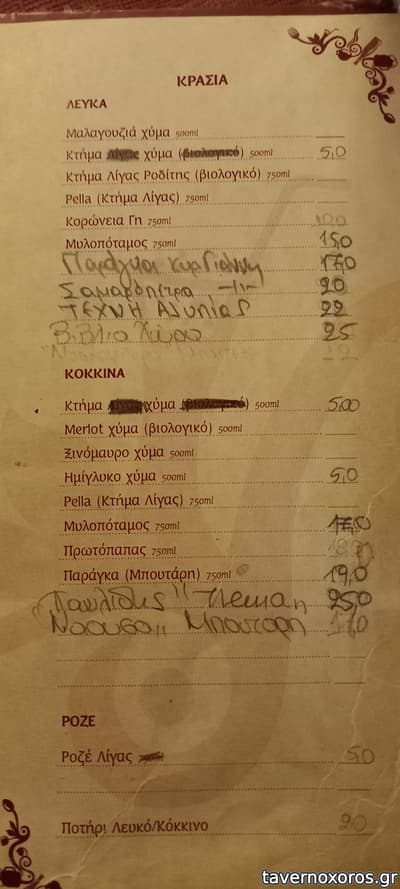 ΚΡΑΣΙΑ
ΛΕΥΚΑ
Μαλαγουζιά χύμα 500ml
Κτήμα Λίγας χύμα (βιολογικό) 500ml 5,0
Κτήμα Λίγας Ροδίτης (βιολογικό) 750ml
Pella (Κτήμα Λίγας) 750ml
Κορώνεια Γη 750ml
Μυλοπόταμος 750ml 15,0
Παράγκα Κυρ Γιάννη 17,0
Σαμαρόπετρα -//- 20
ΤΕΧΝΗ Αλυπίας 22
Βιβλιο Χώρα 25
ΚΟΚΚΙΝΑ
Κτήμα Λίγας χύμα (βιολογικό) 500ml 5,00
Merlot χύμα (βιολογικό) 500ml
Ξινόμαυρο χύμα 500ml
Ημίγλυκο χύμα 500ml 5,0
Pella (Κτήμα Λίγας) 750ml
Μυλοπόταμος 750ml
Πρωτόπαπας 750ml
Παράγκα (Μπουτάρη) 750ml 19,0
Παυλίδης Thema 25,0
Ναουσα Μπουταρη
ΡΟΖΕ
Ροζέ Λίγας 5,0
Ποτήρι Λευκό/Κόκκινο 2,0
tavernoxoros.gr